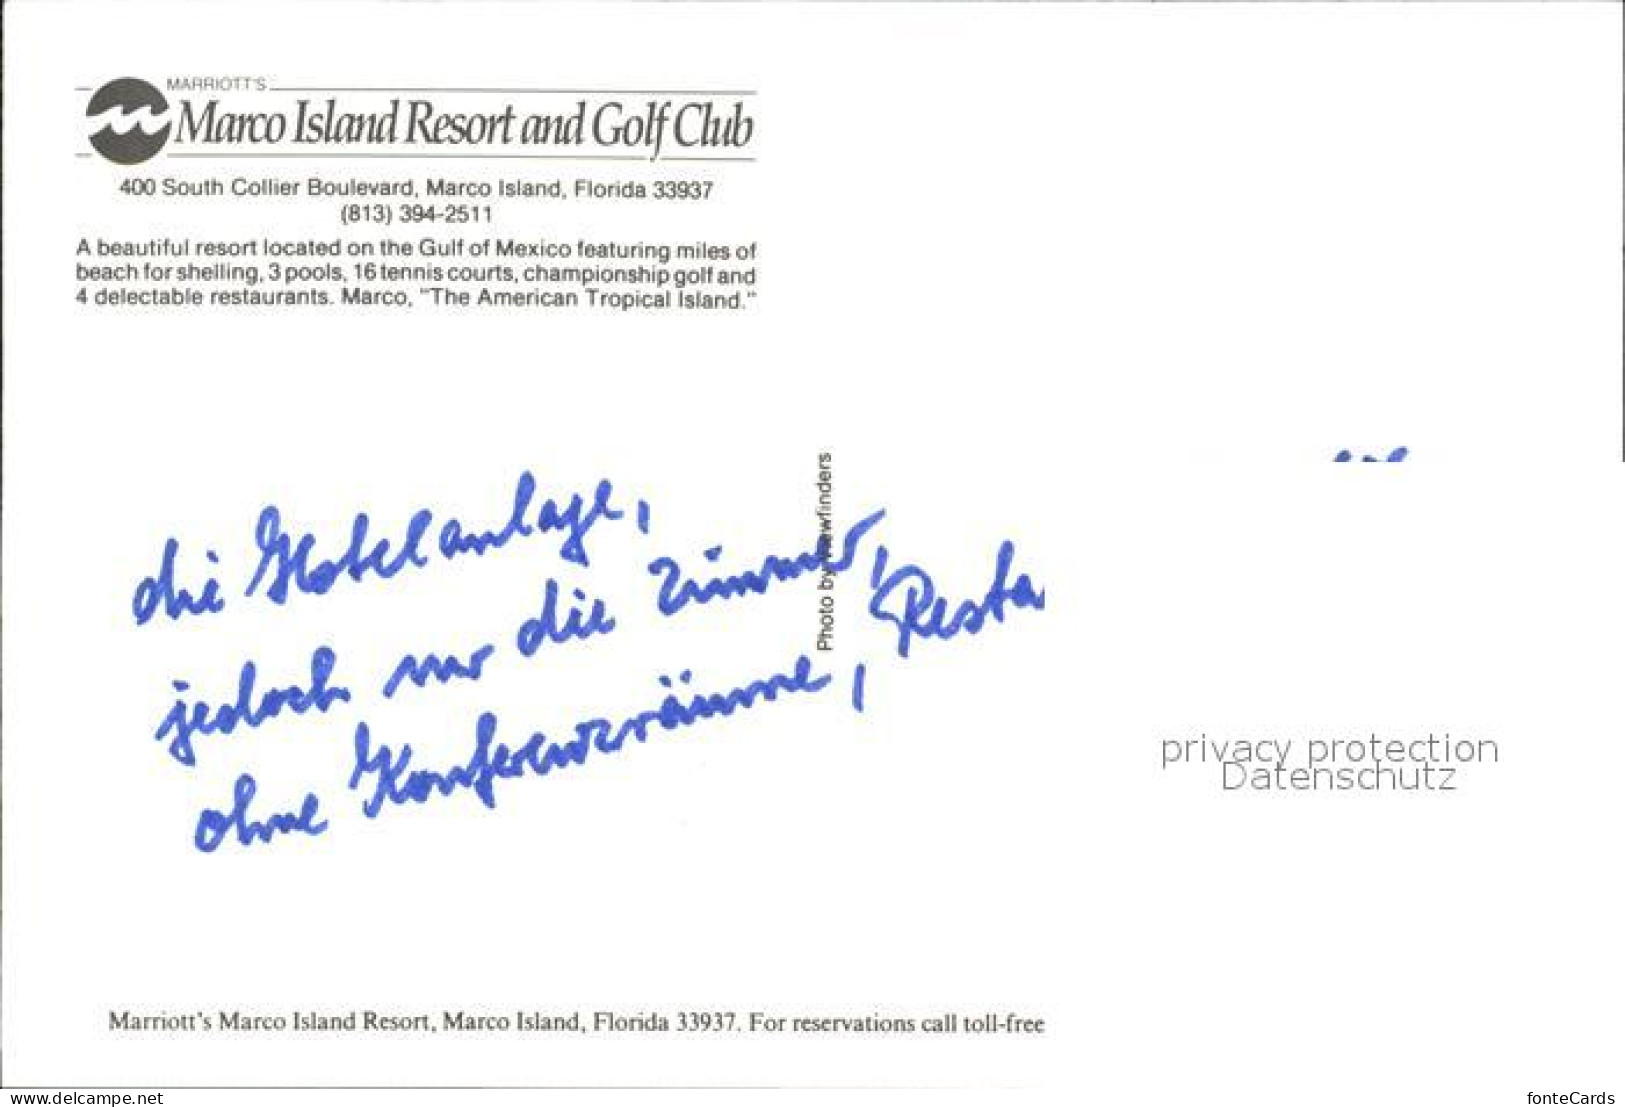 MARRIOTT'S
Marco Island Resort and Golf Club
400 South Collier Boulevard, Marco Island, Florida 33937
(813) 394-2511
A beautiful resort located on the Gulf of Mexico featuring miles of
beach for shelling, 3 pools, 16 tennis courts, championship golf and
4 delectable restaurants. Marco, "The American Tropical Island."
die Hotelanlage,
jedoch nur die Zimmer,
ohne Konferenzräume, Resta
Photo by Viewfinders
privacy protection
Datenschutz
Marriott's Marco Island Resort, Marco Island, Florida 33937. For reservations call toll-free
www.delcampe.net
fonteCards